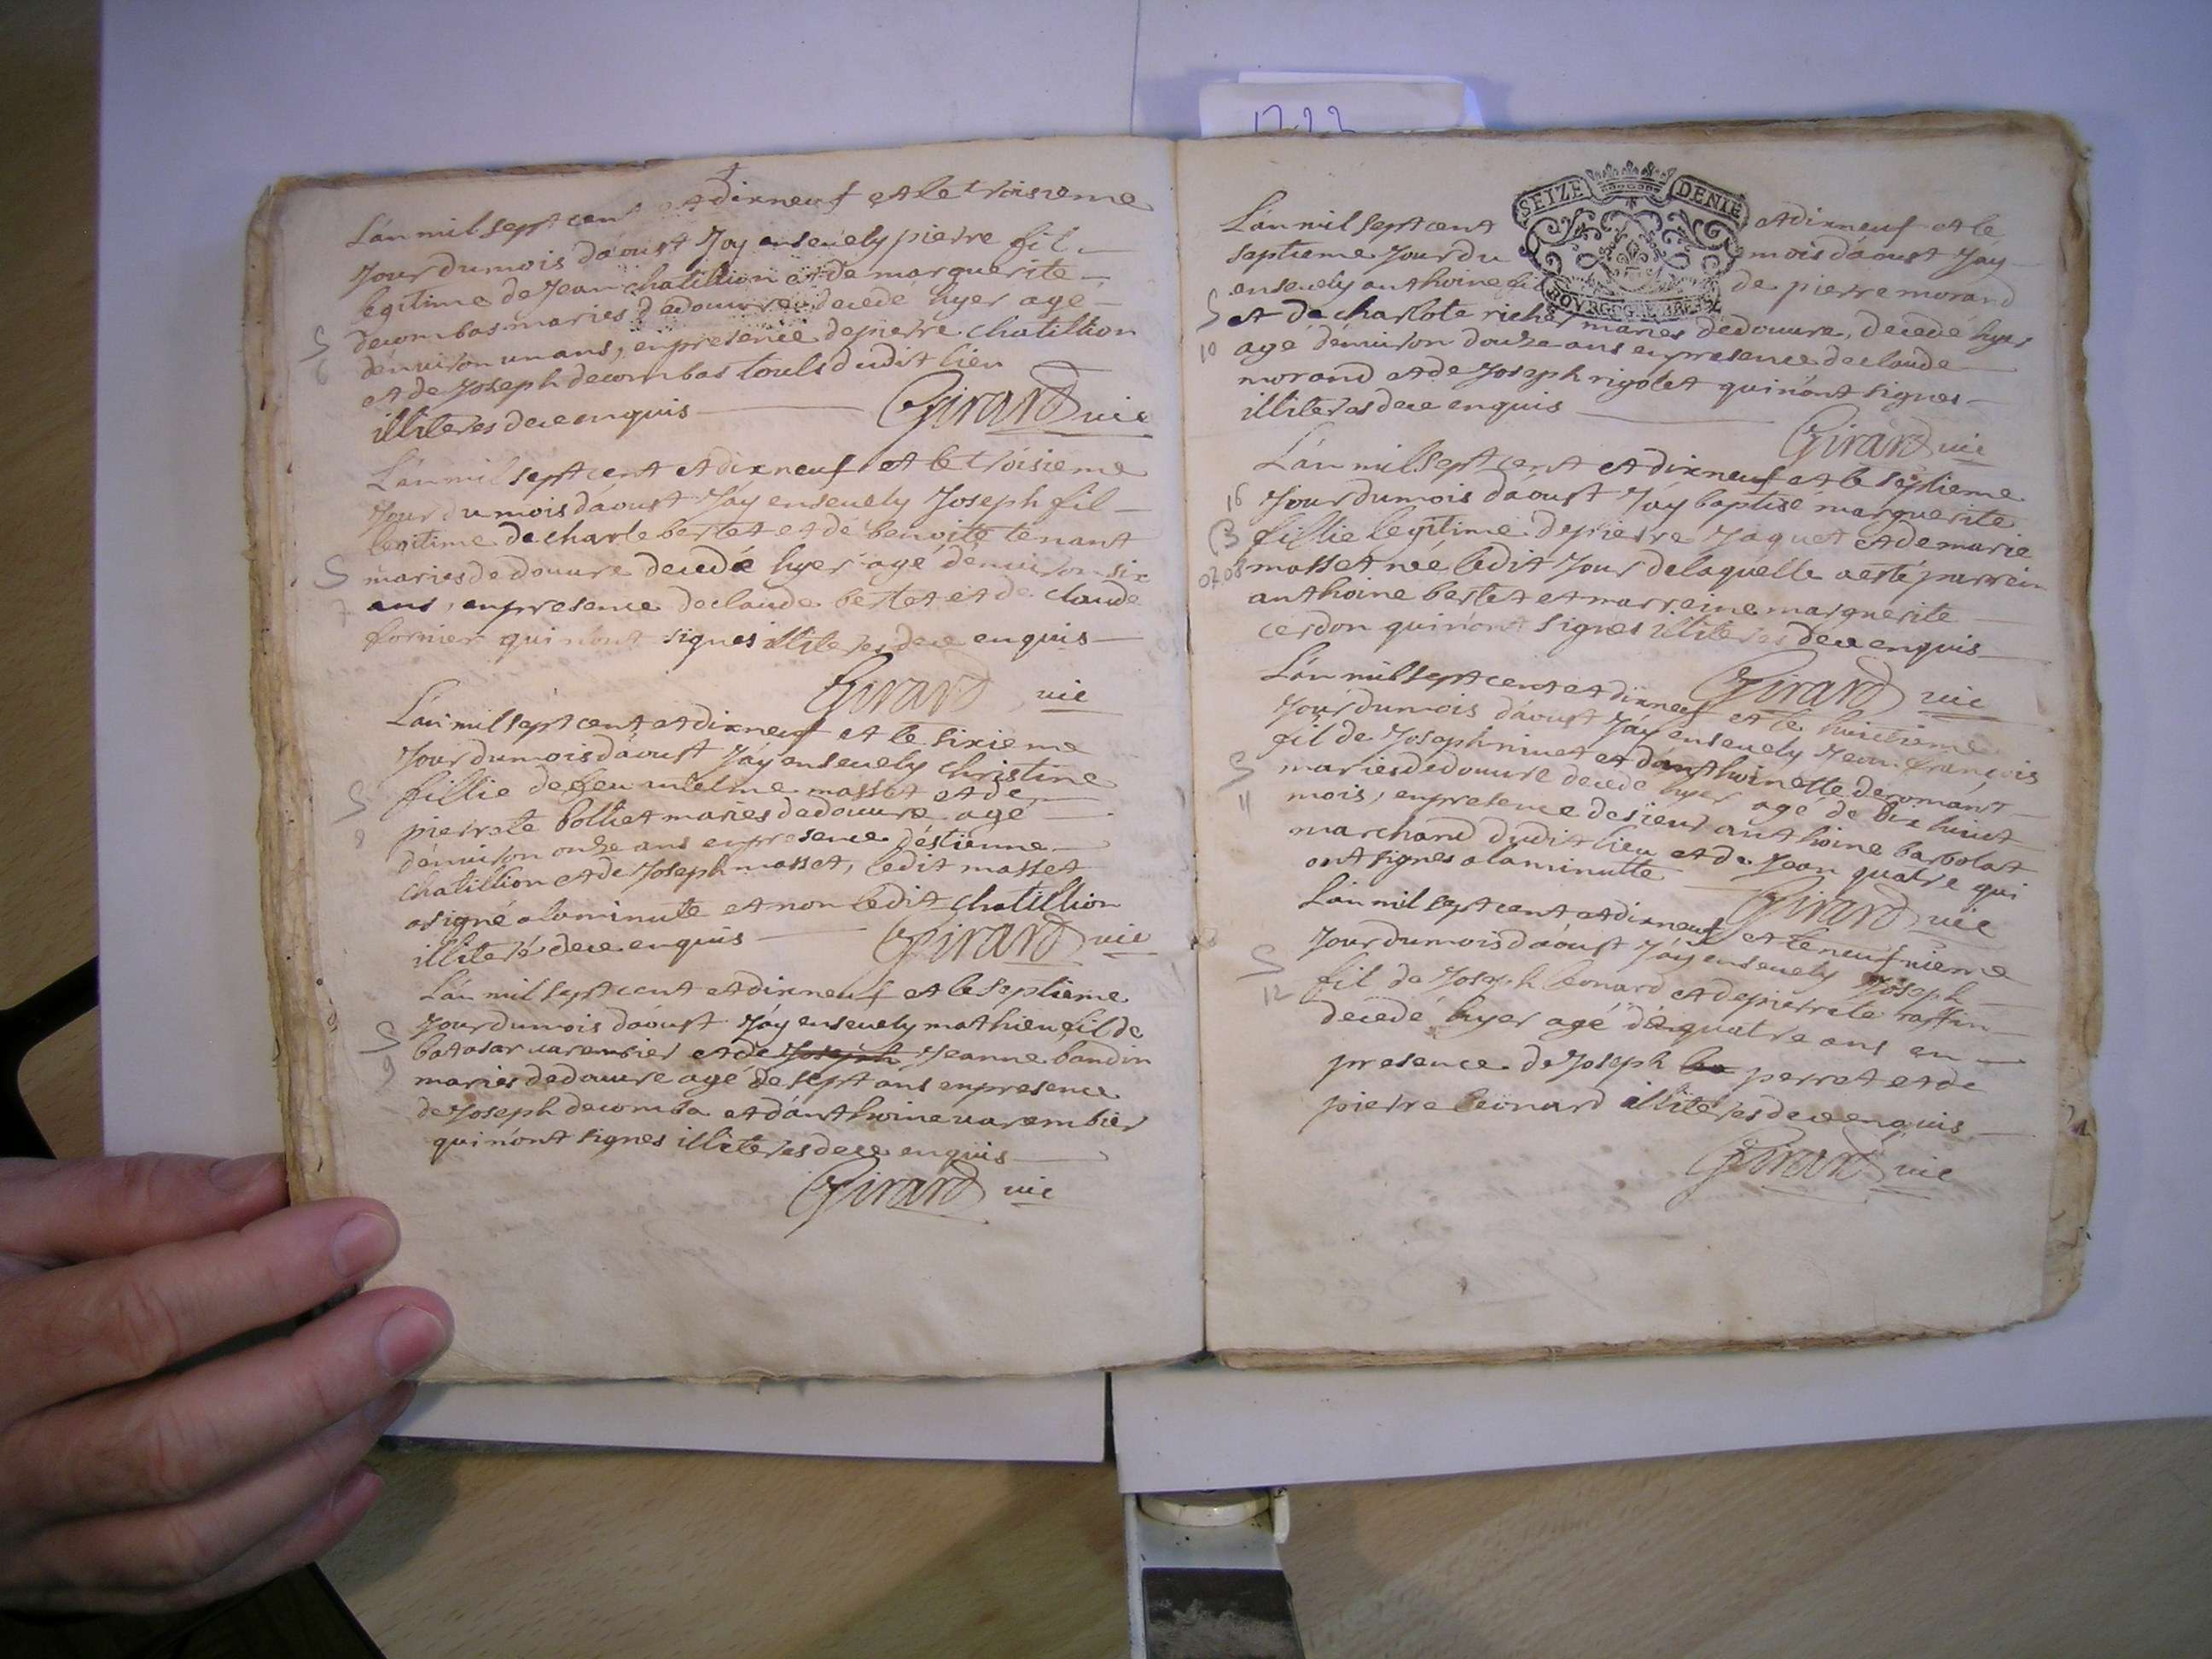 1722
L'an mil sept cent et dixneuf et le troisieme
Jour du mois d'aoust J'ay ensevely pierre fil
legitime de Jean chatillion et de marguerite
decombas maries de douvre decedé hyer agé
d'environ un ans, en presence de pierre chatillion
et de Joseph decombas touts dudit lieu
illiteres de ce enquis Girard vic
S
6
L'an mil sept cent et dixneuf et le troisieme
Jour du mois d'aoust J'ay ensevely Joseph fil
legitime de charle bertet et de benoite tenant
maries de douvre decedé hyer agé d'environ six
ans, en presence de claude bertet et de claude
fornier qui n'ont signes illiteres de ce enquis
Girard vic
S
7
L'an mil sept cent et dixneuf et le sixieme
Jour du mois d'aoust J'ay ensevely christine
fillie de feu masset et de
pierrete bolliet maries de douvre agé
d'environ onze ans en presence d'éstienne
chatillion et de Joseph masset, ledit masset
a signé a la minute et non ledit chatillion
illiteré de ce enquis Girard vic
S
8
L'an mil sept cent et dixneuf et le septieme
Jour du mois d'aoust J'ay ensevely mathieu fil de
batasar varembier et de Joseph Jeanne baudin
maries de douvre agé de sept ans en presence
de Joseph decomba et d'anthoine varembier
qui n'ont signes illiteres de ce enquis
Girard vic
S
9
SEIZE DENIE
BOVRGOGNE BRESSE
L'an mil sept cent et dixneuf et le
septieme Jour du mois d'aoust J'ay
ensevely anthoine fil de pierre morand
et de charlote richer maries de douvre, decedé hyer
agé d'environ douze ans en presence de claude
morand et de Joseph rigolet qui n'ont signes
illiteres de ce enquis
Girard vic
S
10
L'an mil sept cent et dixneuf et le septieme
Jour du mois d'aoust J'ay baptisé marguerite
fillie legitime de pierre Jaquet et de marie
masset née ledit Jour de laquelle a esté parrein
anthoine bertet et marreine marguerite
cerdon qui n'ont signes illiteres de ce enquis
Girard vic
16
B
07 08
L'an mil sept cent et dixneuf et le huictieme
Jour du mois d'aoust J'ay ensevely Jean françois
fil de Joseph nivet et d'anthoinette deromant
maries de douvre decedé hyer agé de dix huict
mois, en presence de sieur anthoine barbolat
marchand dudit lieu et de Jean quatre qui
ont signes a la minutte Girard vic
S
11
L'an mil sept cent et dixneuf et le neufvieme
Jour du mois d'aoust J'ay ensevely Joseph
fil de Joseph leonard et de pierrete raffin
decedé hyer agé de quatre ans en
presence de Joseph perret et de
pierre leonard illiteres de ce enquis
Girard vic
S
12